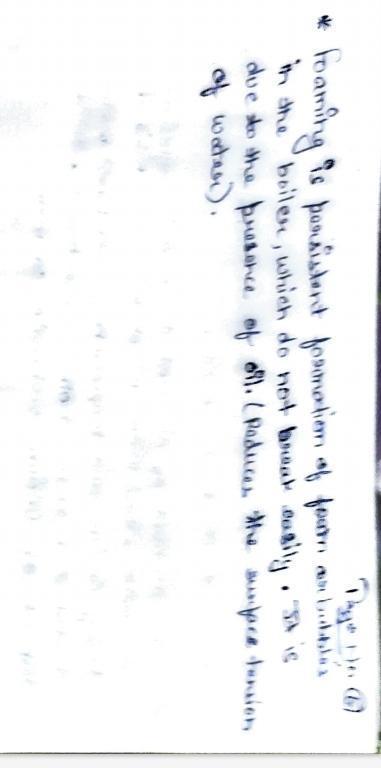 Page No. (6)
* Foaming is persistent formation of foam or bubbles
in the boiler, which do not break easily. It is
due to the presence of oil. (Reduces the surface tension
of water).